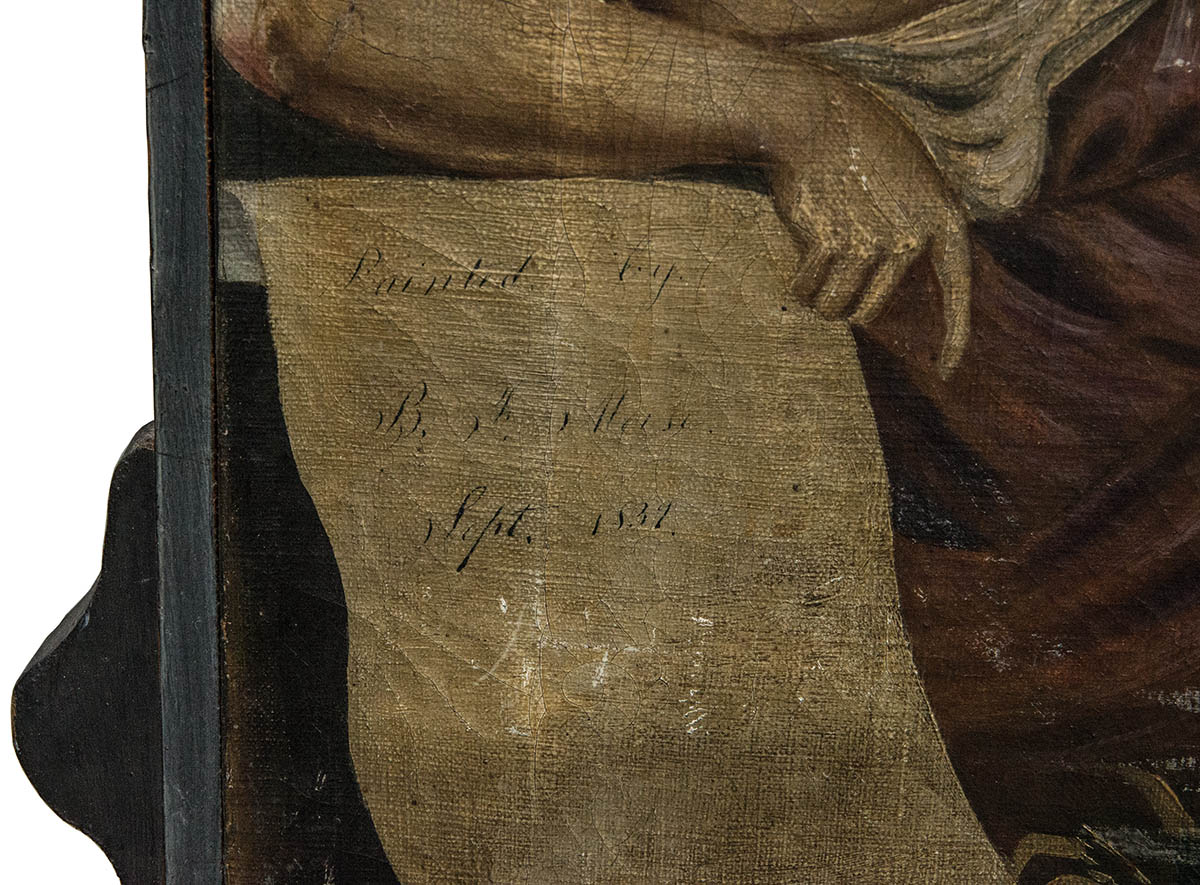 Painted by
B. F. Mason.
Sept. 1837.